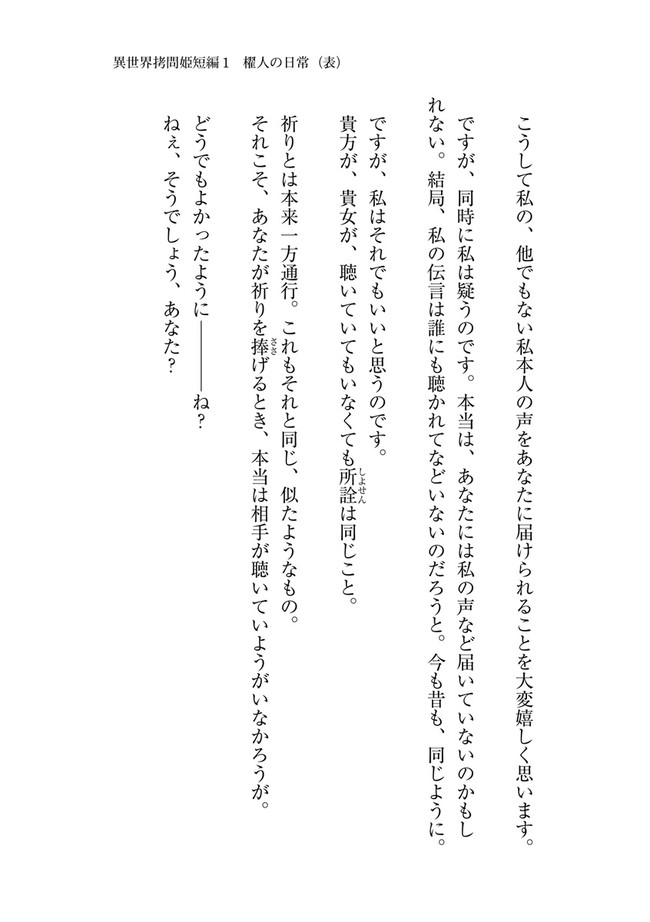 異世界拷問姫短編１　櫂人の日常（表）
こうして私の、他でもない私本人の声をあなたに届けられることを大変嬉しく思います。
ですが、同時に私は疑うのです。本当は、あなたには私の声など届いていないのかもし
れない。結局、私の伝言は誰にも聴かれてなどいないのだろうと。今も昔も、同じように。
ですが、私はそれでもいいと思うのです。
貴方が、貴女が、聴いていてもいなくても所詮は同じこと。
祈りとは本来一方通行。これもそれと同じ、似たようなもの。
それこそ、あなたが祈りを捧げるとき、本当は相手が聴いていようがいなかろうが。
どうでもよかったように――――ね？
ねぇ、そうでしょう、あなた？